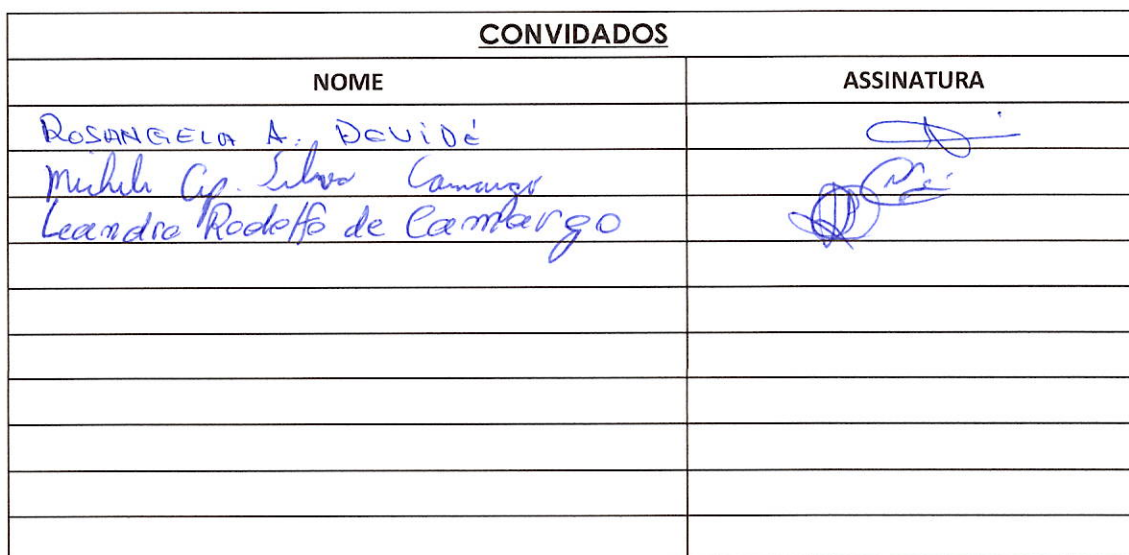 CONVIDADOS
NOME ASSINATURA
ROSANGELA A. DEVIDÉ
Micheli Ap. Silva Camargo
Leandro Rodolfo de Camargo